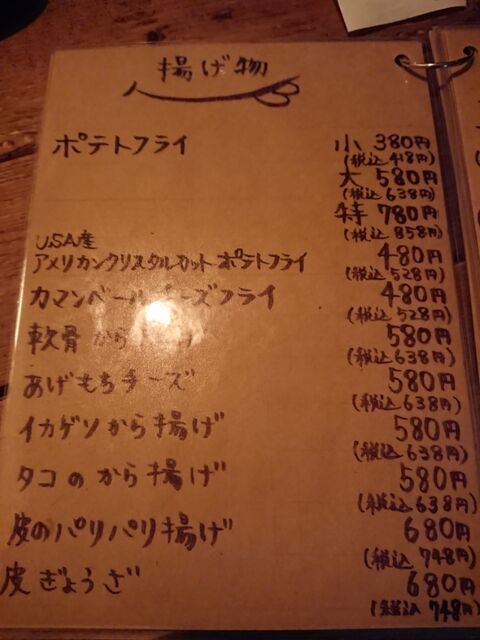 揚げ物
ポテトフライ 小 380円
(税込 418円)
大 580円
(税込 638円)
特 780円
(税込 858円)
USA産
アメリカンクリスタルカットポテトフライ 480円
(税込 528円)
カマンベールチーズフライ 480円
(税込 528円)
軟骨から 580円
(税込 638円)
あげもちチーズ 580円
(税込 638円)
イカゲソから揚げ 580円
(税込 638円)
タコのから揚げ 580円
(税込 638円)
皮のパリパリ揚げ 680円
(税込 748円)
皮ぎょうざ 680円
(税込 748円)